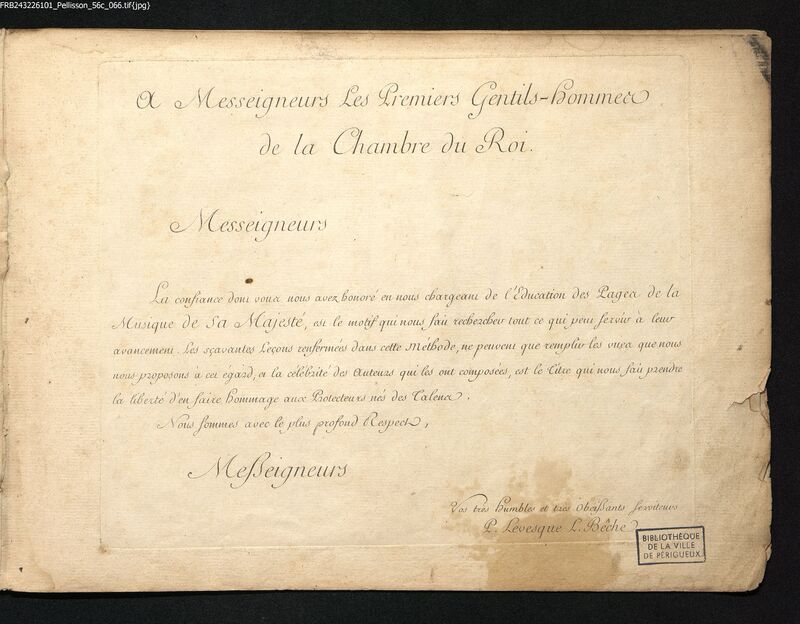 FRB243226101_Pellisson_56c_066.tif{jpg}
A Messeigneurs Les Premiers Gentils-hommes
de la Chambre du Roi.
Messeigneurs
La confiance dont vous nous avez honoré en nous chargeant de l'Education des Pages de la
Musique de Sa Majesté, est le motif qui nous fait rechercher tout ce qui peut servir à leur
avancement. Les sçavantes Leçons renfermées dans cette Methode, ne peuvent que remplir les vues que nous
nous proposons à cet egard, et la célébrité des Auteurs qui les ont composées, est le Titre qui nous fait prendre
la liberté d'en faire hommage aux Protecteurs nés des Talens.
Nous sommes avec le plus profond Respect,
Messeigneurs
Vos très humbles et très Obeissants serviteurs
P. Levesque L. Bêche
BIBLIOTHÈQUE
DE LA VILLE
DE PÉRIGUEUX